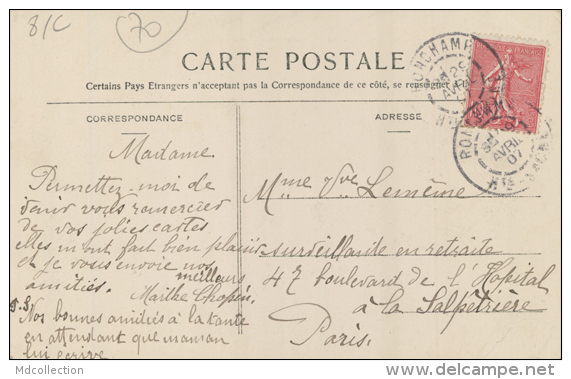 81C
70
CARTE POSTALE
Certains Pays Etrangers n'acceptant pas la Correspondance de ce côté, se renseigner à la
CORRESPONDANCE
ADRESSE
Madame
Permettez-moi de
venir vous remercier
de vos jolies cartes
elles m'ont fait bien plaisir
et je vous envoie nos
meilleurs
amitiés. Marthe Chopin.
P.S.
Nos bonnes amitiés à la tante
en attendant que maman
lui écrive
Mme Vve Lemême
surveillante en retraite
47 boulevard de l'Hôpital
à la Salpêtrière
Paris.
RONCHAMP
29
AVRIL
Hte
RON
AVRIL
07
Hte-SAONE
Mdcollection
www.delcampe.net